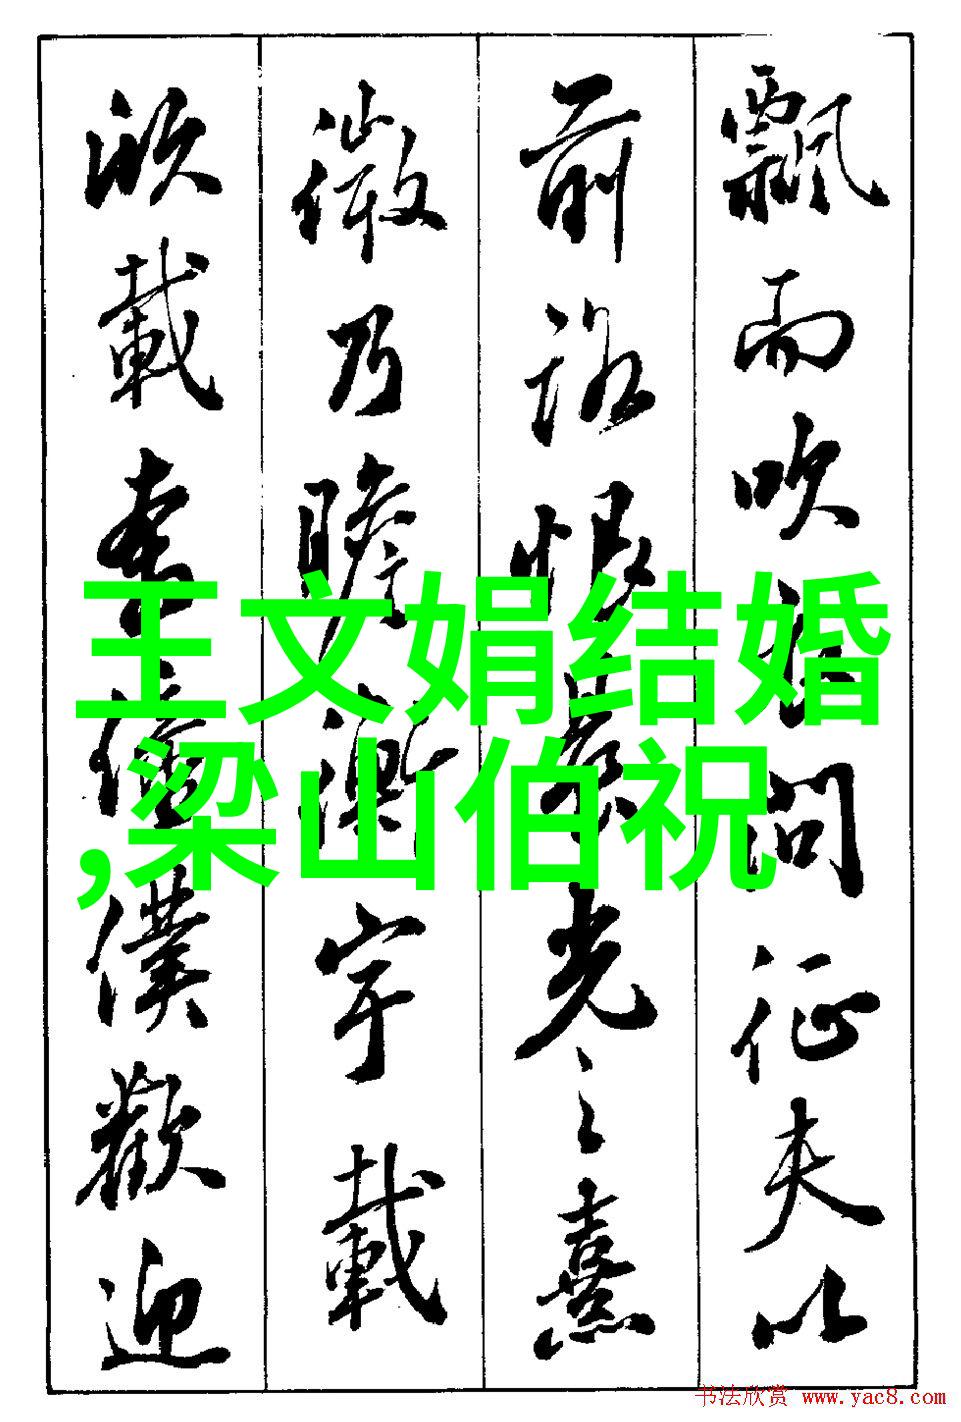 飄而吹衣問征夫以
前路恨晨光之熹
微乃瞻衡宇載
欣載奔僮僕歡迎
王文娟结婚
,梁山伯祝
书法欣赏 www.yac8.com